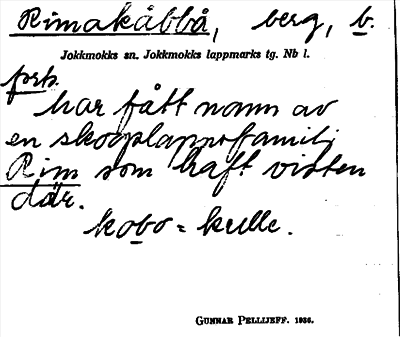 Rimakåbbå, berg, b.
Jokkmokks sn. Jokkmokks lappmarks tg. Nb l.
prb.
har fått namn av
en skogslappsfamilj
Rim som haft visten
där.
kobo = kulle.
GUNNAR PELLIJEFF. 1936.